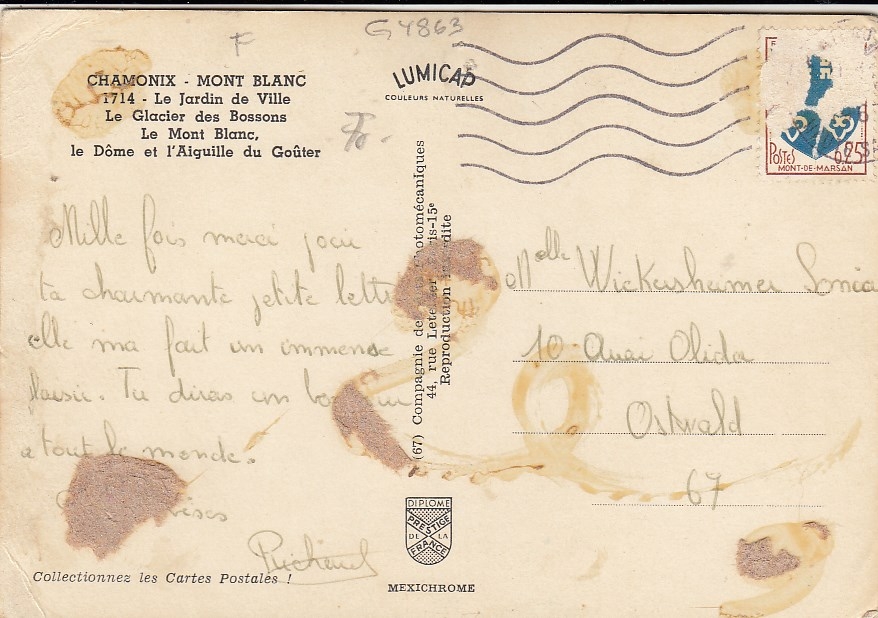 G 4863
F
CHAMONIX - MONT BLANC
1714 - Le Jardin de Ville
Le Glacier des Bossons
Le Mont Blanc,
le Dôme et l'Aiguille du Goûter
LUMICAP
COULEURS NATURELLES
POSTES
0,25
MONT-DE-MARSAN
Mille fois merci pour
ta charmante petite lettre
elle ma fait un immense
plaisir. Tu diras un
a tout le monde.
Collectionnez les Cartes Postales !
(67) Compagnie des Photomécaniques
44, rue Paris-15e
Reproduction interdite
Melle Wickersheimer Sonia
10 Quai Olida
Ostwald
67
DIPLOME
PRESTIGE
DE LA
FRANCE
MEXICHROME